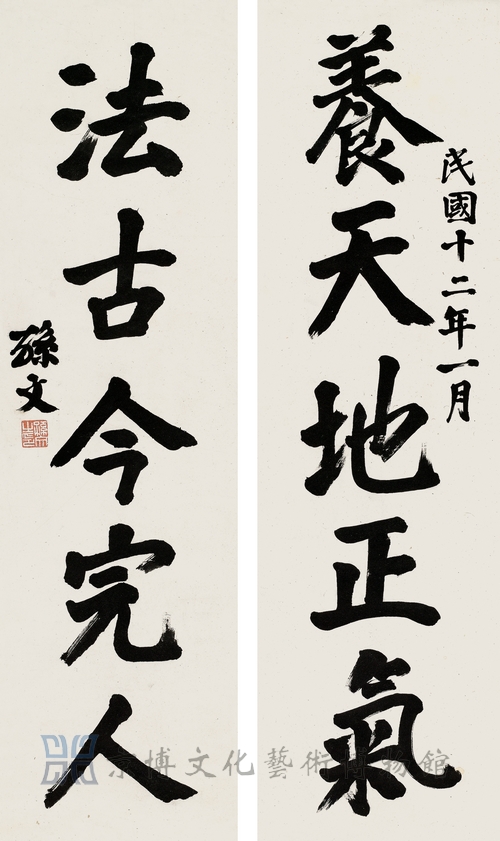 民國十二年一月
養天地正氣
法古今完人
孫文
京博文化藝術博物館